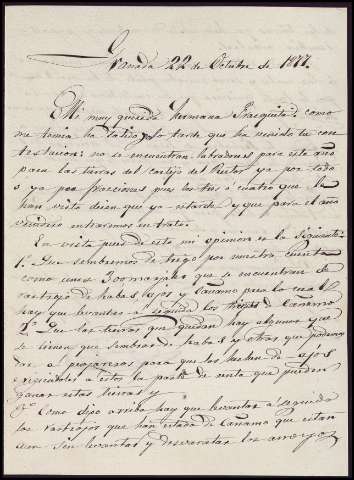 Granada 22 de Octubre de 1877.
Mi muy querida hermana Frasquita: como
me temia ha salido, lo tarde que ha venido tu con
testacion: no se encuentran labradores para este año
para las tierras del cortijo del Pintor ya por todo
o ya por fracciones pues los tres ó cuatro que lo
han visto dicen que ya es tarde y que para el año
venidero entraremos en trato.
En vista pues de esto mi opinion es la siguiente
1.º Que sembremos de trigo por nuestra cuenta
como unos 300 marjales que se encuentran de
rastrojo de habas, ajos y cañamo para lo cual
hay que levantar á seguida los de Cañamo
2.º Que las tierras que quedan hay algunas que
se tienen que sembrar de habas y otras que podemos
dar á para que los de ajos
á estos la parte de renta que pueden
ganar estas tierras y
3.º Como dijo arriba hay que levantar á seguida
los rastrojos que han estado de Cañamo que estan
aun sin levantar y desbaratar los arroyos